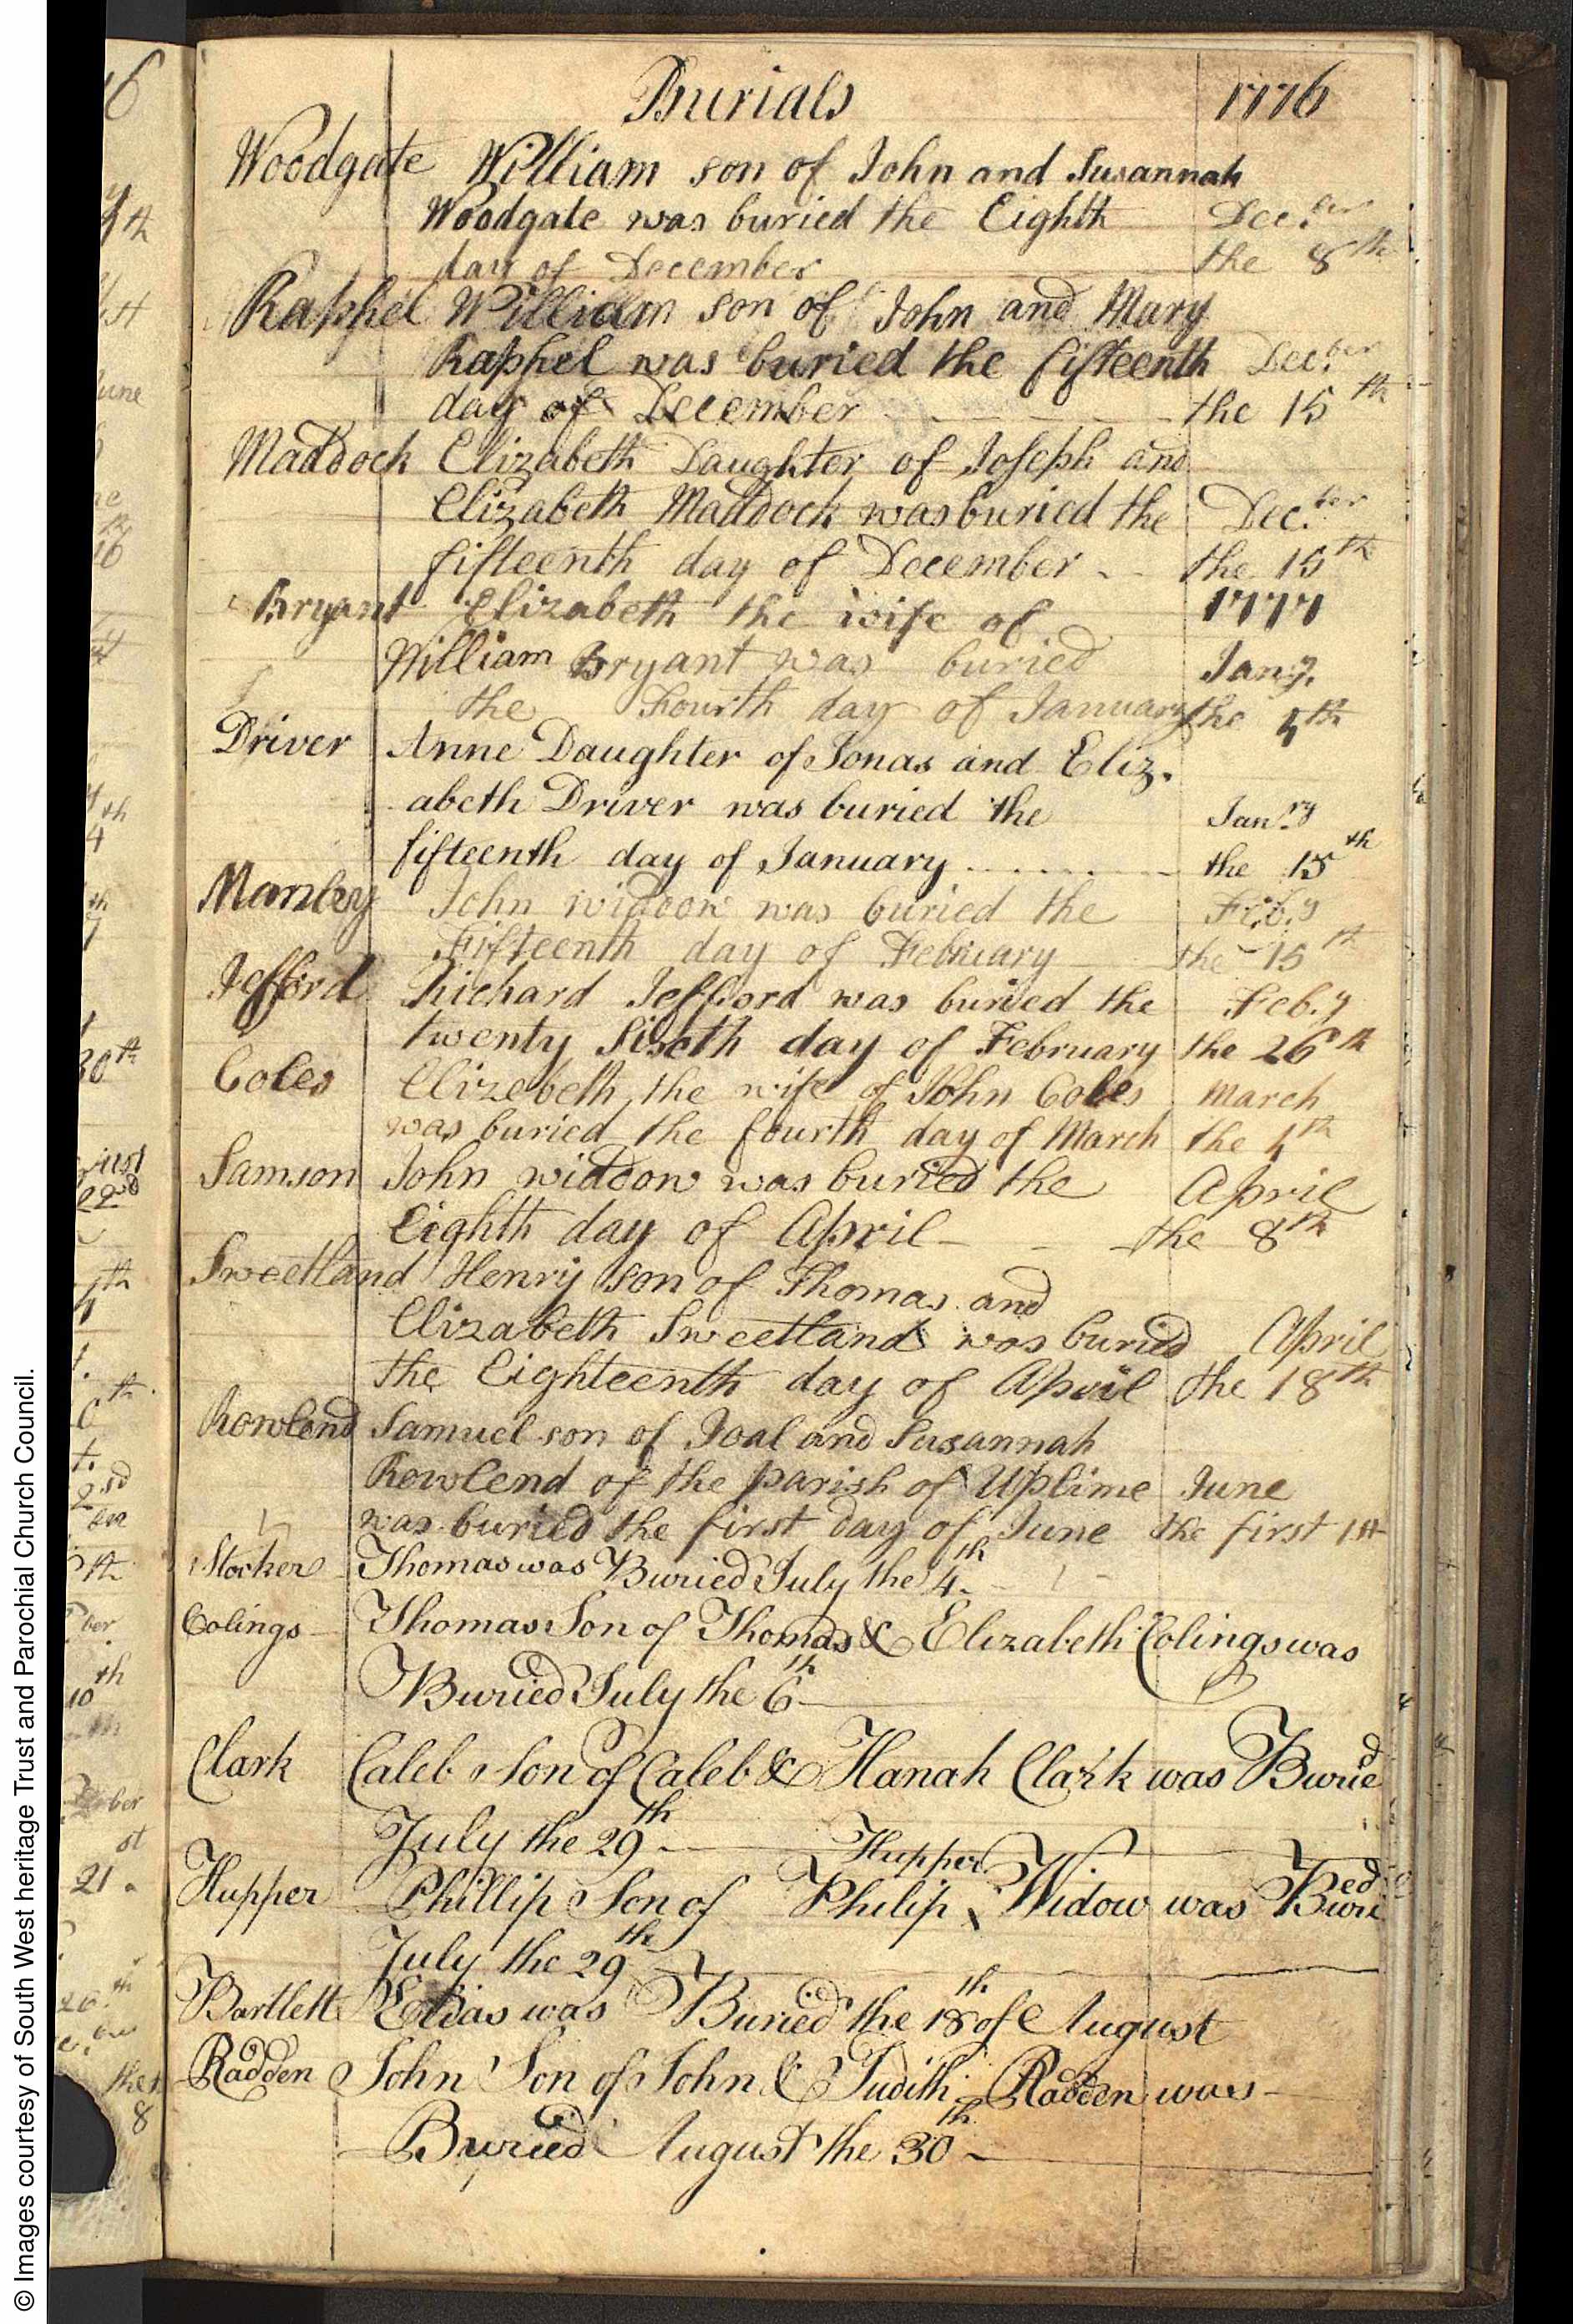 Burials 1776
Woodgate William son of John and Susannah
Woodgate was buried the Eighth Dec.ber
day of December the 8th
Raphel William son of John and Mary
Raphel was buried the fifteenth Dec.ber
day of December - - - the 15th
Maddock Elizabeth Daughter of Joseph and
Elizabeth Maddock was buried the Dec.ber
fifteenth day of December - - the 15th
Bryant Elizabeth the wife of 1777
William Bryant was buried Jany.
the Fourth day of January the 4th
Driver Anne Daughter of Jonas and Eliz.
abeth Driver was buried the Jan.ry
fifteenth day of January ....... the 15th
Manley John widdow was buried the Feb.y
Fifteenth day of February the 15th
Jefford Richard Jefford was buried the Feb.y
twenty Sixeth day of February the 26th
Coles Elizebeth the wife of John Coles March
was buried the fourth day of March the 4th
Samson John widdow was buried the April
Eighth day of April - - the 8th
Sweetland Henry son of Thomas and
Elizabeth Sweetland was buried April
the Eighteenth day of April the 18th
Rowlend Samuel son of Joal and Susannah
Rowlend of the parish of Uplime June
was buried the first day of June the first 1st
Stocker Thomas was Buried July the 4th
Colings Thomas Son of Thomas & Elizabeth Colings was
Buried July the 6th
Clark Caleb Son of Caleb & Hanah Clark was Buried
July the 29th
Hupper
Hupper Phillip Son of Philip Widow was Buried
July the 29th
Bartlett Elias was Buried the 18th of August
Radden John Son of John & Judith Radden was
Buried August the 30th
© Images courtesy of South West heritage Trust and Parochial Church Council.